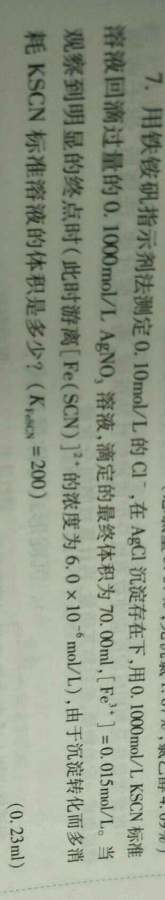 7. 用铁铵矾指示剂法测定 0.10mol/L 的 Cl⁻, 在 AgCl 沉淀存在下, 用 0.1000mol/L KSCN 标准
溶液回滴过量的 0.1000mol/L AgNO₃ 溶液, 滴定的最终体积为 70.00ml, [Fe³⁺] = 0.015mol/L。当
观察到明显的终点时(此时游离[Fe(SCN)]²⁺ 的浓度为 6.0×10⁻⁶ mol/L), 由于沉淀转化而多消
耗 KSCN 标准溶液的体积是多少? (K_FeSCN = 200)
(0.23ml)